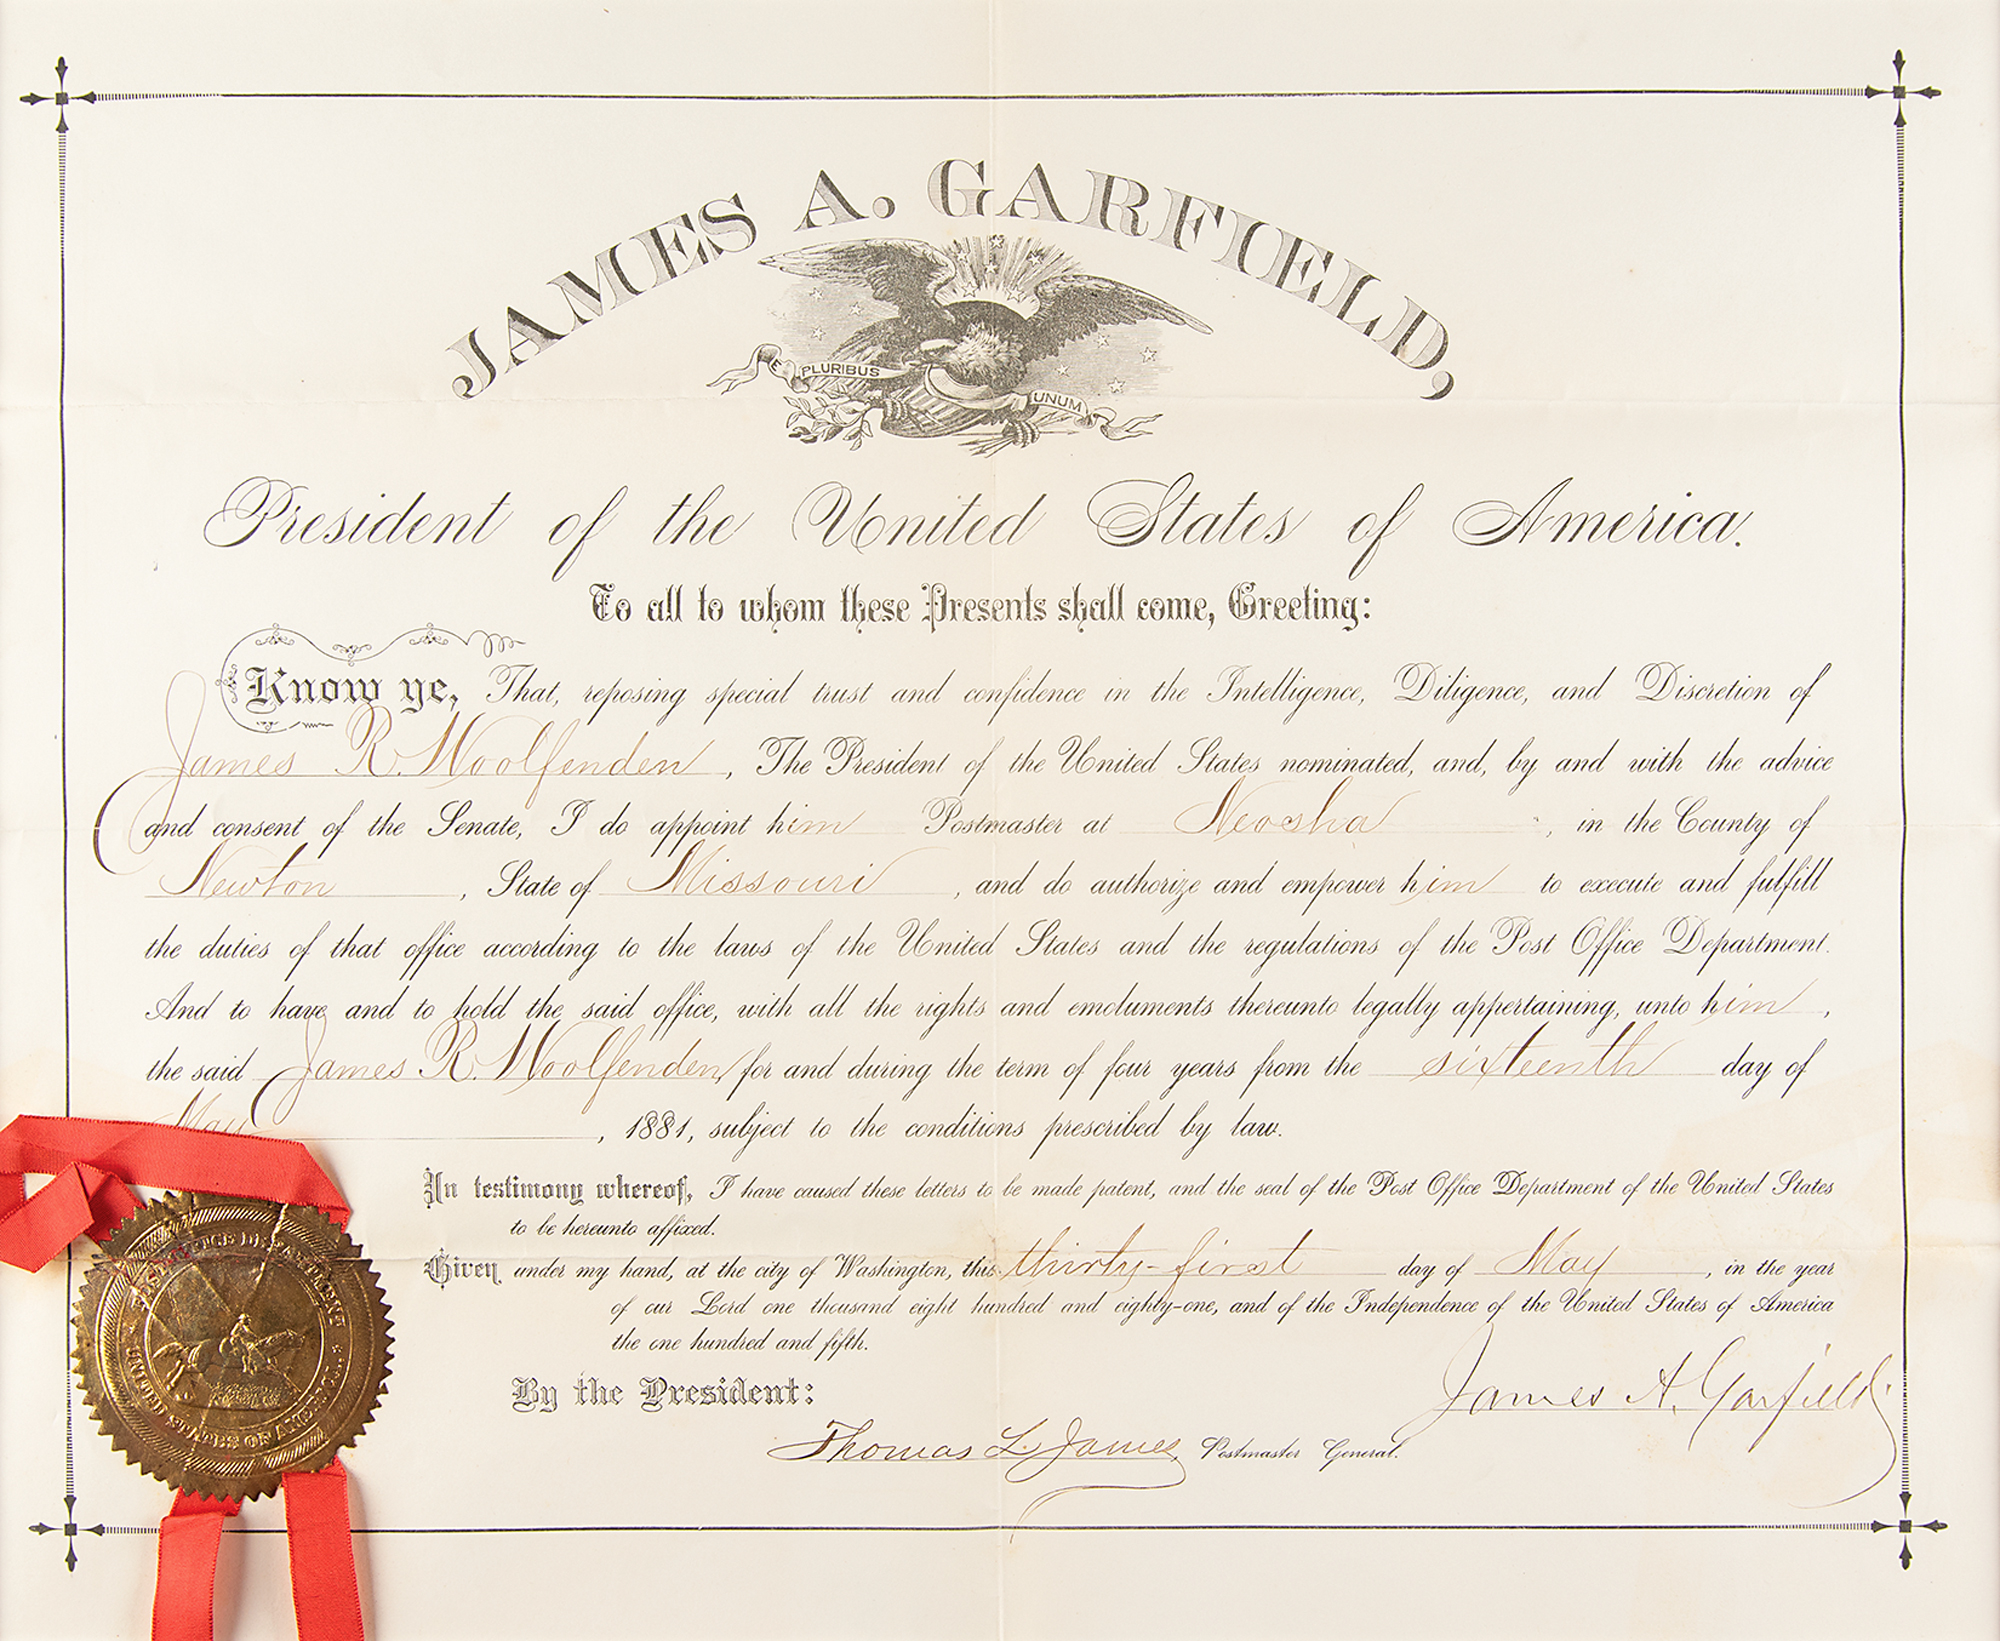 JAMES A. GARFIELD,
E PLURIBUS UNUM
President of the United States of America.
To all to whom these Presents shall come, Greeting:
Know ye, That, reposing special trust and confidence in the Intelligence, Diligence, and Discretion of
James R. Woolfenden, The President of the United States nominated, and, by and with the advice
and consent of the Senate, I do appoint him Postmaster at Neosha, in the County of
Newton, State of Missouri, and do authorize and empower him to execute and fulfill
the duties of that office according to the laws of the United States and the regulations of the Post Office Department.
And to have and to hold the said office, with all the rights and emoluments thereunto legally appertaining, unto him,
the said James R. Woolfenden, for and during the term of four years from the sixteenth day of
May, 1881, subject to the conditions prescribed by law.
In testimony whereof, I have caused these letters to be made patent, and the seal of the Post Office Department of the United States
to be hereunto affixed.
Given under my hand, at the city of Washington, this thirty-first day of May, in the year
of our Lord one thousand eight hundred and eighty-one, and of the Independence of the United States of America
the one hundred and fifth.
By the President:
James A. Garfield
Thomas L. James, Postmaster General.
POST OFFICE DEPARTMENT
UNITED STATES OF AMERICA.